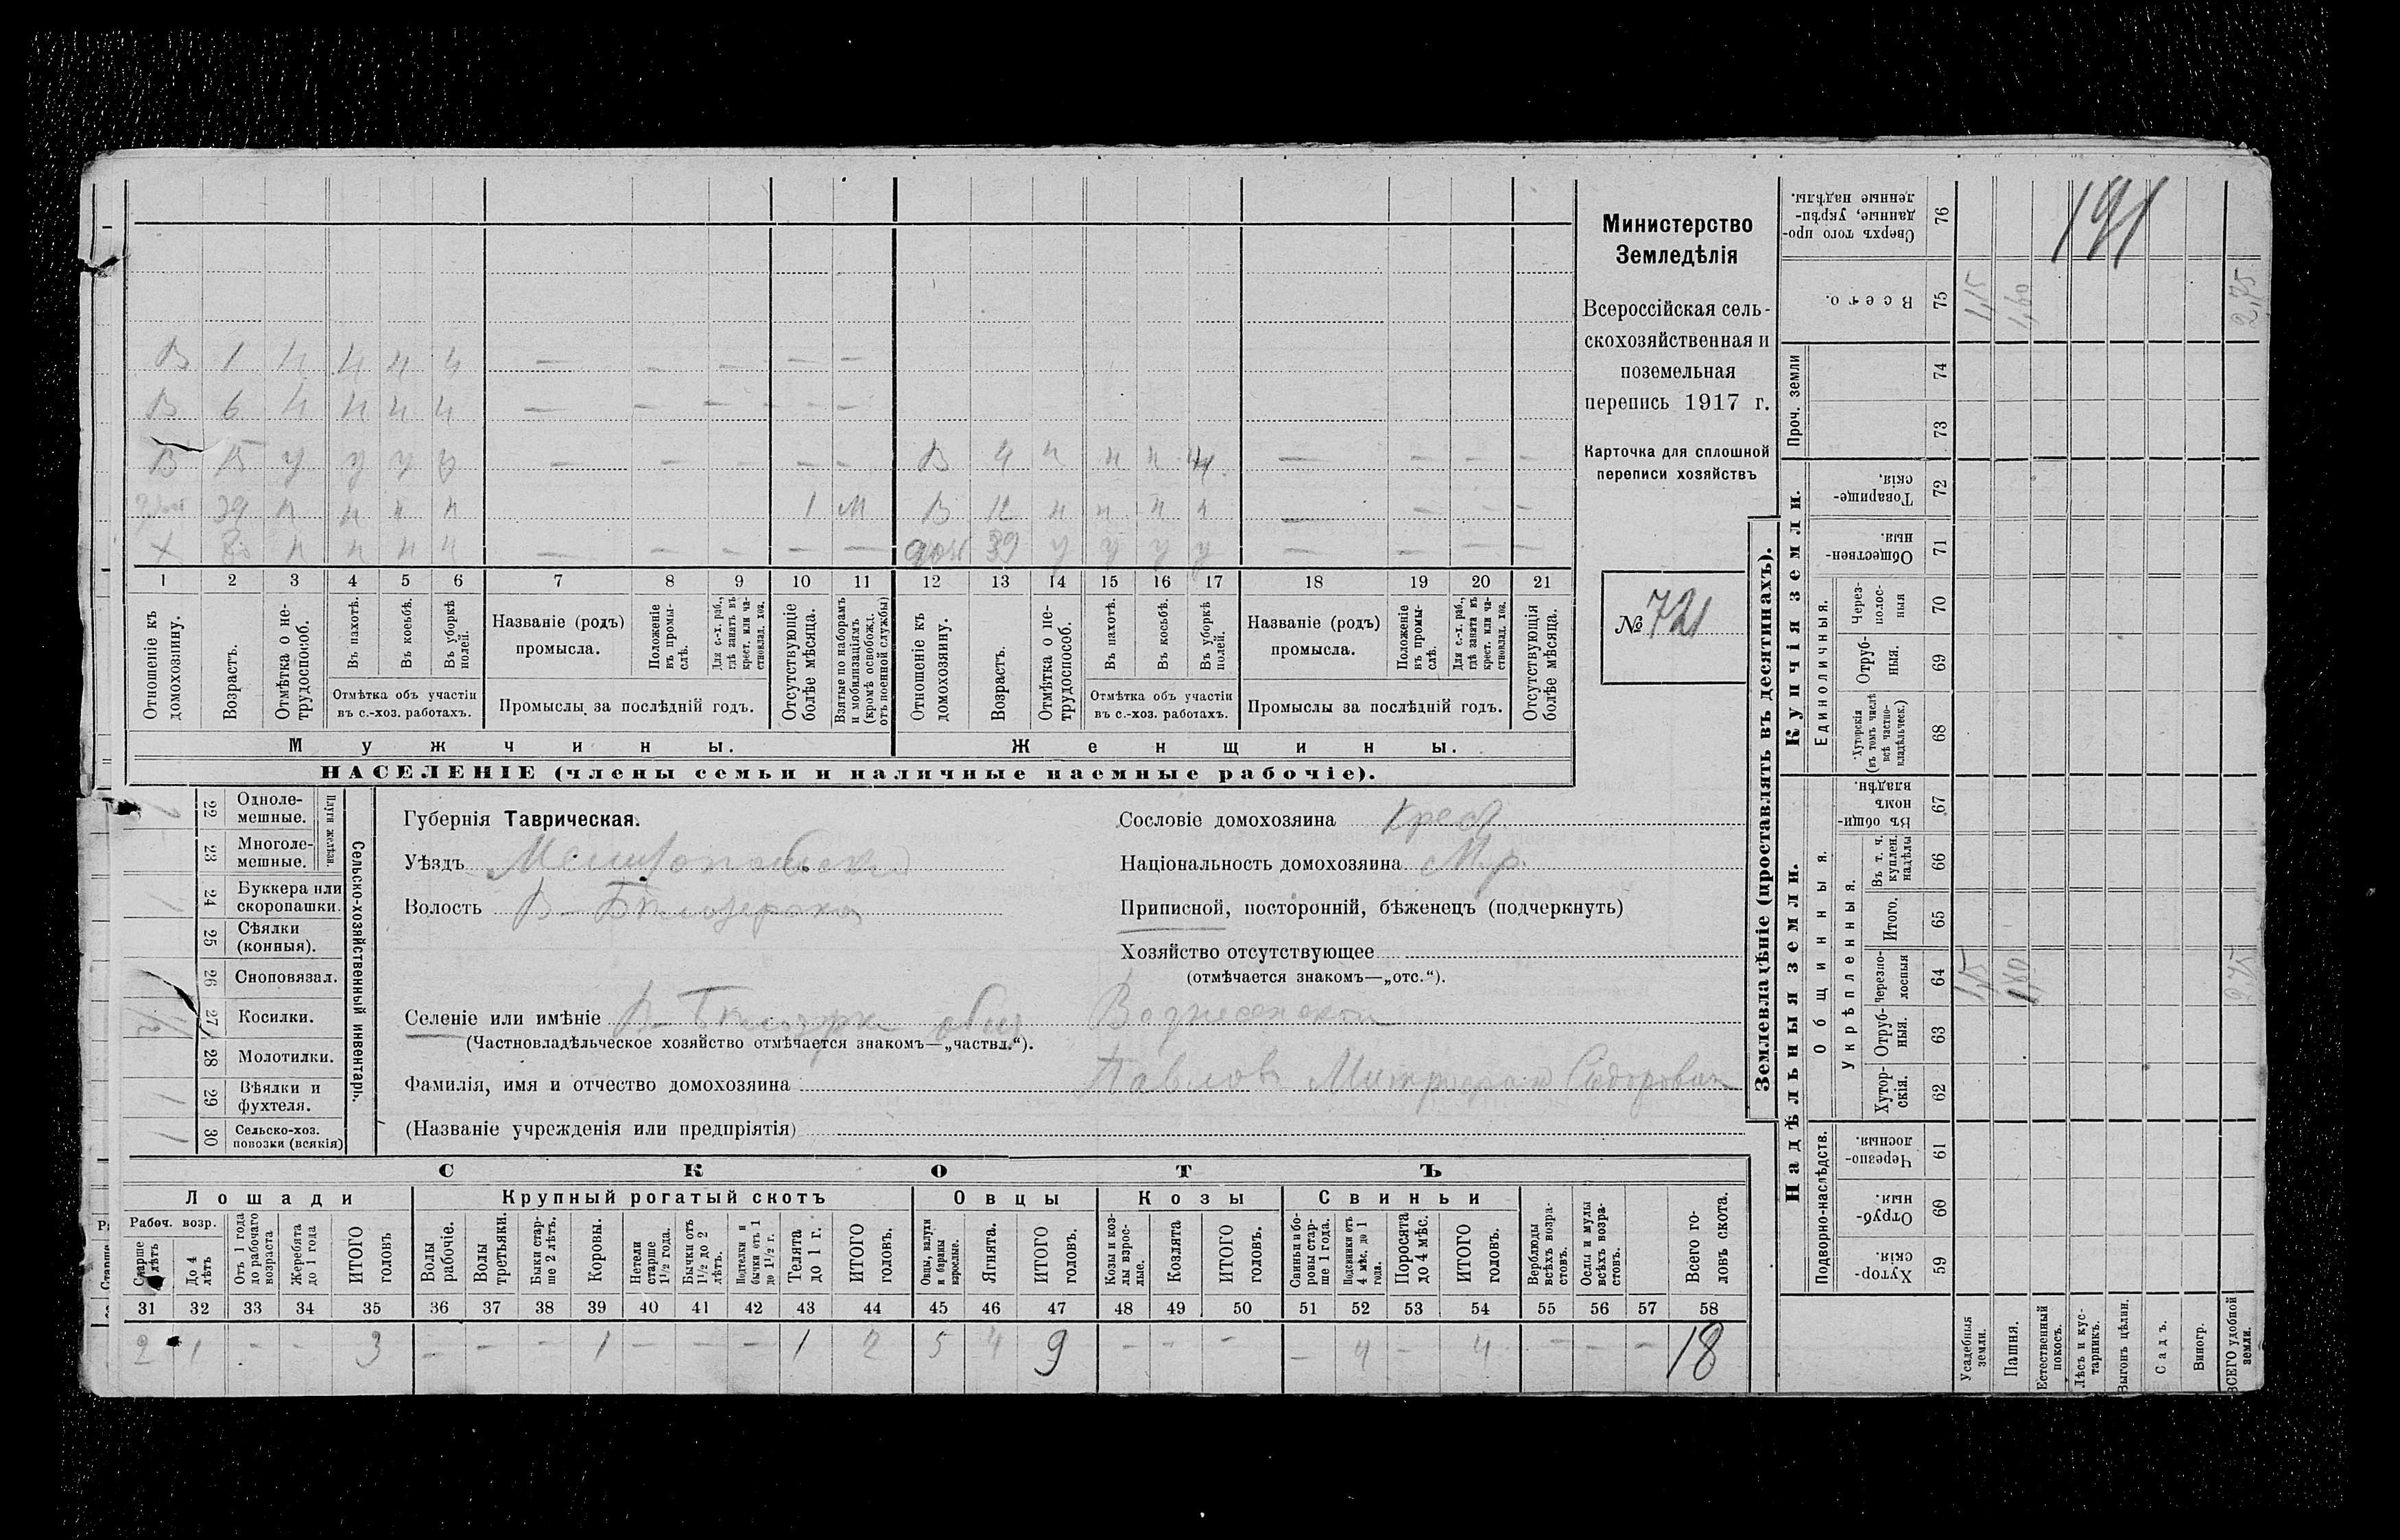 191
Министерство
Земледѣлія
Всероссійская сель-
скохозяйственная и
поземельная
перепись 1917 г.
Карточка для сплошной
переписи хозяйствъ
№ 721
В 1 н н н н — — — — —
В 6 н н н н — — — — —
В 15 у у у у — — — — — В 4 н н н н — — — —
39 н н н н 1 М В 12 н н н н — — — —
Х н н н н — — — — — 39 у у у у — — — —
1 2 3 4 5 6 7 8 9 10 11 12 13 14 15 16 17 18 19 20 21
Отношеніе къ домохозяину.
Возрастъ.
Отмѣтка о не-трудоспособ.
Въ пахотѣ.
Въ косьбѣ.
Въ уборкѣ полей.
Отмѣтка объ участіи
въ с.-хоз. работахъ.
Названіе (родъ)
промысла.
Положеніе въ промы-слѣ.
Для с.-х. раб., гдѣ занятъ въ крест. или ча-стновлад. хоз.
Промыслы за послѣдній годъ.
Отсутствующіе болѣе мѣсяца.
Взятые по наборамъ и мобилизаціямъ (кромѣ освобожд. отъ военной службы)
Отношеніе къ домохозяину.
Возрастъ.
Отмѣтка о не-трудоспособ.
Въ пахотѣ.
Въ косьбѣ.
Въ уборкѣ полей.
Отмѣтка объ участіи
въ с.-хоз. работахъ.
Названіе (родъ)
промысла.
Положеніе въ промы-слѣ.
Для с.-х. раб., гдѣ занята въ крест. или ча-стновлад. хоз.
Промыслы за послѣдній годъ.
Отсутствующія болѣе мѣсяца.
Мужчины. Женщины.
НАСЕЛЕНІЕ (члены семьи и наличные наемные рабочіе).
Сельско-хозяйственный инвентарь.
Плуги желѣзн.
22 Одноле-мешные.
23 Многоле-мешные.
24 Буккера или скоропашки.
25 Сѣялки (конныя).
26 Сноповязал.
27 Косилки.
28 Молотилки.
29 Вѣялки и фухтеля.
30 Сельско-хоз. повозки (всякія)
Губернія Таврическая.
Уѣздъ Мелитопольск
Волость В-Бѣлозерская
Селеніе или имѣніе В-Бѣлозерка общ Вознесенской
(Частновладѣльческое хозяйство отмѣчается знакомъ—„частвл.“).
Фамилія, имя и отчество домохозяина Павлов Митрофан Сидорович
(Названіе учрежденія или предпріятія)
Сословіе домохозяина крест
Національность домохозяина М.р.
Приписной, посторонній, бѣженецъ (подчеркнуть)
Хозяйство отсутствующее
(отмѣчается знакомъ—„отс.“).
СКОТЪ
Лошади Крупный рогатый скотъ Овцы Козы Свиньи
Рабоч. возр.
Старше лѣтъ
До 4 лѣтъ
Отъ 1 года до рабочаго возраста
Жеребята до 1 года
ИТОГО головъ
Волы рабочіе.
Волы третьяки.
Быки стар-ше 2 лѣтъ.
Коровы.
Нетели старше 1½ года.
Бычки отъ 1½ до 2 лѣтъ.
Подтелки и бычки отъ 1 до 1½ г.
Телята до 1 г.
ИТОГО головъ.
Овцы, валухи и бараны взрослые.
Ягнята.
ИТОГО головъ.
Козы и коз-лы взрос-лые.
Козлята
ИТОГО головъ.
Свиньи и бо-ровы стар-ше 1 года.
Подсвинки отъ 4 мѣс. до 1 года.
Поросята до 4 мѣс.
ИТОГО головъ.
Верблюды всѣхъ возра-стовъ.
Ослы и мулы всѣхъ возра-стовъ.
Всего го-ловъ скота.
31 32 33 34 35 36 37 38 39 40 41 42 43 44 45 46 47 48 49 50 51 52 53 54 55 56 57 58
2 1 - - 3 - - - 1 - - - 1 2 5 4 9 - - - - 4 - 4 - - - 18
Землевладѣніе (проставлять въ десятинахъ).
Надѣльныя земли.
Купчія земли.
Проч. земли
Подворно-наслѣдств.
Общинныя.
Укрѣпленныя.
Единоличныя.
59 Хутор-скія.
60 Отруб-ныя.
61 Черезпо-лосныя.
62 Хутор-скія.
63 Отруб-ныя.
64 Черезпо-лосныя
65 Итого.
66 Въ т. ч. куплен. надѣлы
67 Въ общи-номъ владѣн.
68 Хуторскія (въ томъ числѣ всѣ частно-владѣльческ.)
69 Отруб-ныя.
70 Через-полос-ныя
71 Обществен-ныя.
72 Товарище-скія.
73
74
75 Всего.
76 Сверхъ того про-данные, укрѣп-ленные надѣлы.
Усадебныя земли. 1,15 1,15
Пашня. 1,60 1,60
Естественный покосъ.
Лѣсъ и кус-тарникъ.
Выгонъ цѣлин.
Садъ.
Виногр.
ВСЕГО удобной земли. 2,75 2,75